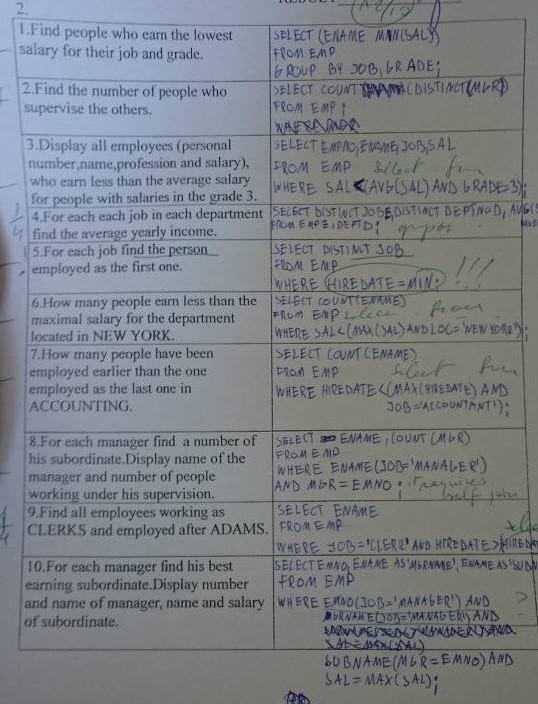 2.
1.Find people who earn the lowest
salary for their job and grade.
SELECT (ENAME MIN(SAL))
FROM EMP
GROUP BY JOB, GRADE;
2.Find the number of people who
supervise the others.
SELECT COUNT (DISTINCT(MGR)
FROM EMP;
3.Display all employees (personal
number,name,profession and salary),
who earn less than the average salary
for people with salaries in the grade 3.
SELECT EMPNO, ENAME, JOB, SAL
FROM EMP select from
WHERE SAL<(AVG(SAL) AND GRADE=3);
4.For each each job in each department
find the average yearly income.
SELECT DISTINCT JOBE, DISTINCT DEPTNO D, AVG(S
FROM EMP E, DEPT D;
5.For each job find the person
employed as the first one.
SELECT DISTINCT JOB
FROM EMP
WHERE HIREDATE=MIN; !!!
6.How many people earn less than the
maximal salary for the department
located in NEW YORK.
SELECT COUNT(ENAME)
FROM EMP select from
WHERE SAL<(MAX(SAL) AND LOC='NEW YORK');
7.How many people have been
employed earlier than the one
employed as the last one in
ACCOUNTING.
SELECT COUNT (ENAME)
FROM EMP select from
WHERE HIREDATE<(MAX(HIREDATE) AND
JOB='ACCOUNTANT');
8.For each manager find a number of
his subordinate.Display name of the
manager and number of people
working under his supervision.
SELECT ENAME, COUNT (MGR)
FROM EMP
WHERE ENAME(JOB='MANAGER')
AND MGR=EMNO; it requires
self join
9.Find all employees working as
CLERKS and employed after ADAMS.
SELECT ENAME
FROM EMP
WHERE JOB='CLERK' AND HIREDATE>(HIREDA
10.For each manager find his best
earning subordinate.Display number
and name of manager, name and salary
of subordinate.
SELECT EMNO, ENAME AS 'MGRNAME', ENAME AS 'SUBN
FROM EMP
WHERE EMNO(JOB='MANAGER') AND ?
MGRNAME(JOB='MANAGER') AND
SUBNAME(MGR=EMNO) AND
SAL=MAX(SAL);